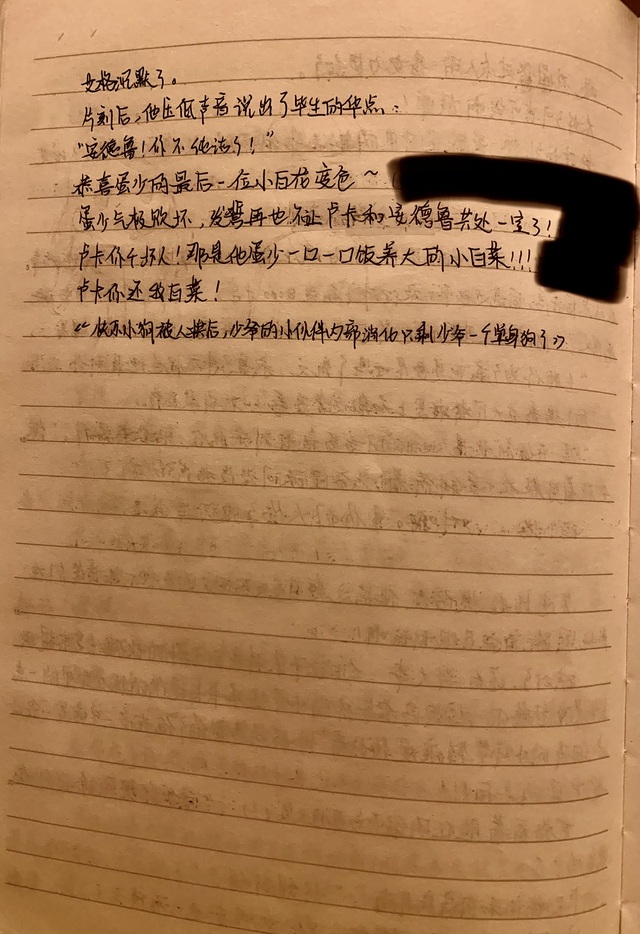 艾格沉默了。
片刻后，他压低声音说出了毕生的华点：
“安德鲁！你不纯洁了！”
恭喜蛋少的最后一位小白花变色～
蛋少气极败坏，发誓再也不让卢卡和安德鲁共处一室了！
卢卡你个坏人！那是他蛋少一口一口饭养大的小白菜！！！
卢卡你还我白菜！
《快乐小狗被人拱后，少爷的小伙伴内部消化只剩少爷一个单身狗了》